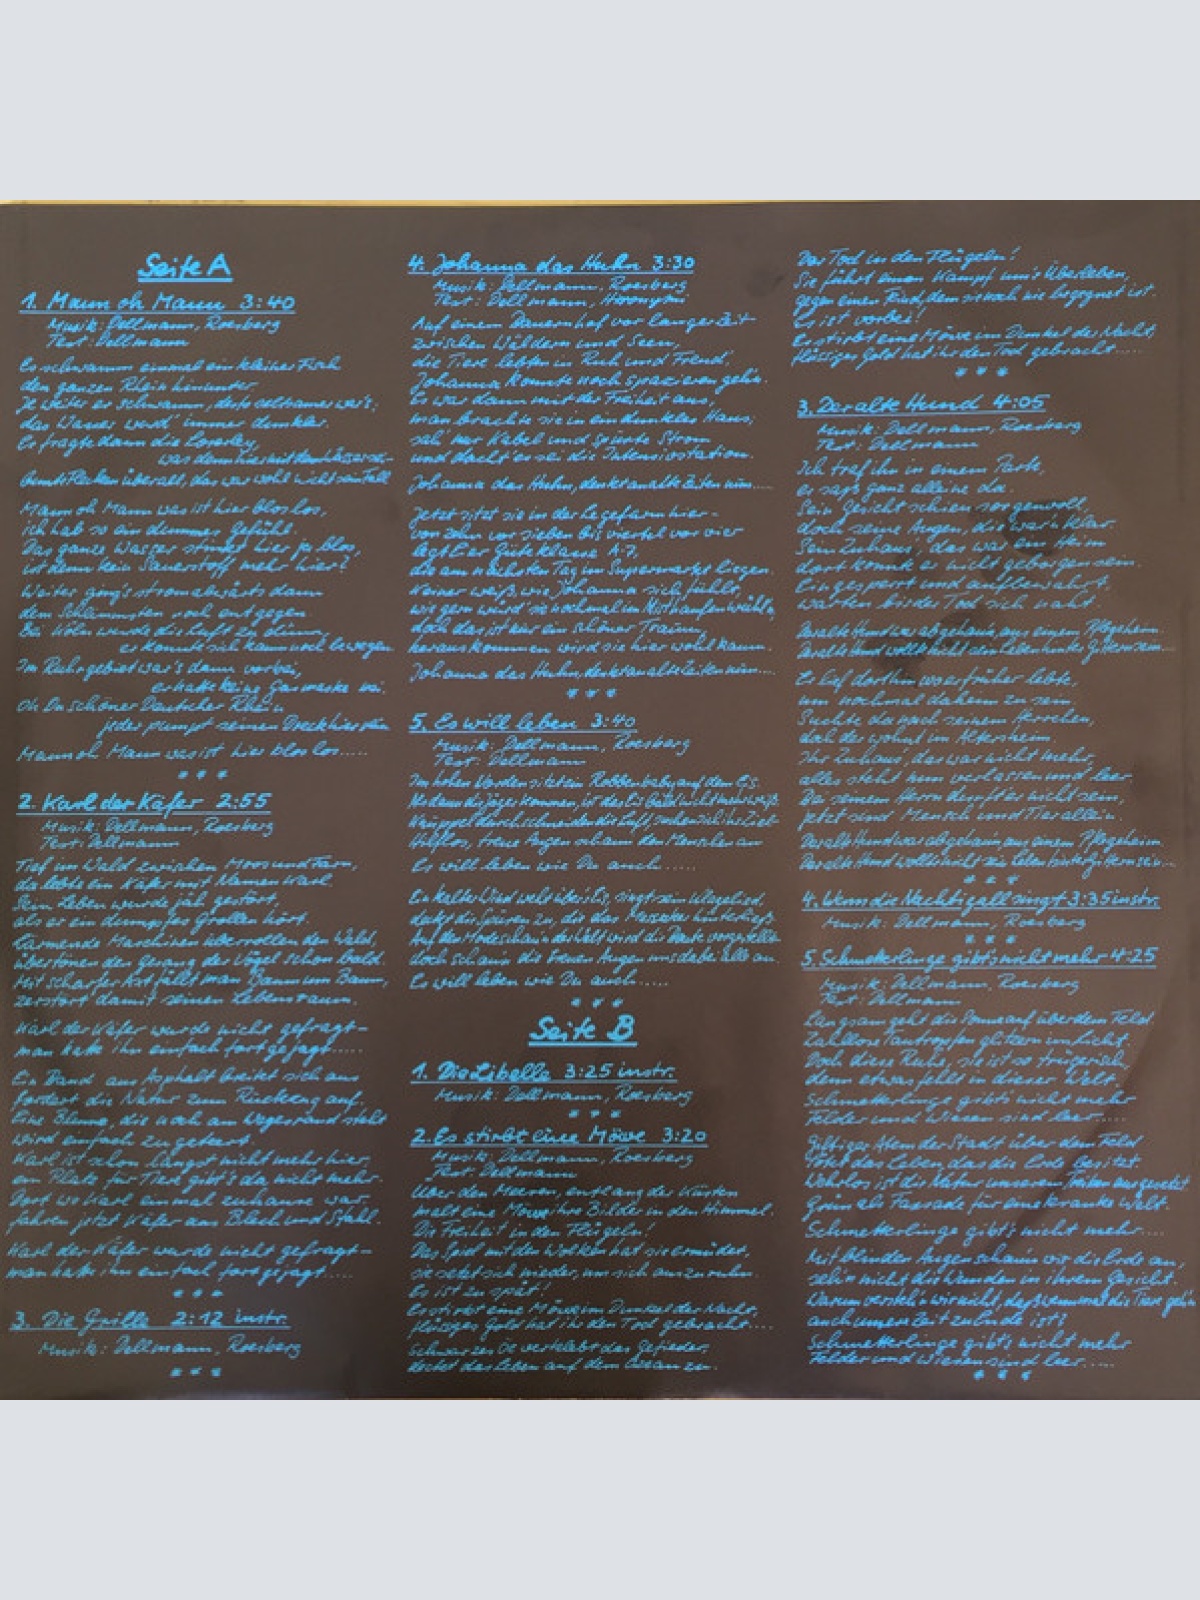 Seite A
1. Mann oh Mann 3:40
Musik: Dellmann, Roesberg
Text: Dellmann
Es schwamm einmal ein kleiner Fisch
den ganzen Rhein hinunter.
Je weiter er schwamm, desto seltsamer war's;
das Wasser wurd' immer dunkler.
Er fragte dann die Loreley,
was denn hier mit dem Wasser sei.
Bunte Flecken überall, das war wohl nicht sein Fall
Mann oh Mann was ist hier blos los,
ich hab so ein dummes Gefühl.
Das ganze Wasser stinkt hier ja blos,
ist denn kein Sauerstoff mehr hier?
Weiter ging's stromabwärts dann
dem Schlimmsten noch entgegen
Bei Köln wurde die Luft zu dünn,
er konnte sich kaum noch bewegen
Im Ruhrgebiet war's dann vorbei,
er hatte keine Gasmaske bei.
Oh Du schöner Deutscher Rhein
jeder pumpt seinen Dreck hier rein
Mann oh Mann was ist hier blos los.....
* * *
2. Karl der Käfer 2:55
Musik: Dellmann, Roesberg
Text: Dellmann
Tief im Wald zwischen Moos und Farn,
da lebte ein Käfer mit Namen Karl.
Sein Leben wurde jäh gestört,
als er ein dumpfes Grollen hört.
Lärmende Maschinen überrollen den Wald,
übertönen den Gesang der Vögel schon bald.
Mit scharfer Axt fällt man Baum um Baum,
zerstört damit seinen Lebensraum.
Karl der Käfer wurde nicht gefragt -
man hatte ihn einfach fort gejagt.....
Ein Band aus Asphalt breitet sich aus
fordert die Natur zum Rückzug auf.
Eine Blume, die noch am Wegesrand steht
wird einfach zugeteert.
Karl ist schon längst nicht mehr hier,
ein Platz für Tiere gibt's da nicht mehr.
Dort wo Karl einmal zuhause war,
fahren jetzt Käfer aus Blech und Stahl.
Karl der Käfer wurde nicht gefragt -
man hatte ihn einfach fort gejagt.....
* * *
3. Die Grille 2:12 instr.
Musik: Dellmann, Roesberg
* * *
4. Johanna das Huhn 3:30
Musik: Dellmann, Roesberg
Text: Dellmann, Hieronymi
Auf einem Bauernhof vor langer Zeit
zwischen Wäldern und Seen,
die Tiere lebten in Ruh und Freud',
Johanna konnte noch spazieren geh'n.
Es war dann mit der Freiheit aus,
man brachte sie in ein dunkles Haus,
sah' nur Kabel und spürte Strom
und dacht' es sei die Intensivstation.
Johanna das Huhn, denkt an alte Zeiten nun.....
Jetzt sitzt sie in der Legefarm hier -
von zehn vor sieben bis viertel vor vier
legt Eier Güteklasse A-7,
die am nächsten Tag im Supermarkt liegen.
Keiner weiß, wie Johanna sich fühlt,
wie gern würd' sie nochmal im Misthaufen wühl'n,
doch das ist nur ein schöner Traum,
herauskommen wird sie hier wohl kaum.
Johanna das Huhn, denkt an alte Zeiten nun....
* * *
5. Es will leben 3:40
Musik: Dellmann, Roesberg
Text: Dellmann
Im hohen Norden sitzt ein Robbenbaby auf dem Eis.
Wo dann die Jäger kommen, ist das Eis bald nicht mehr weiß.
Knüppel durchschneiden die Luft, suchen sich ihr Ziel
Hilflos, treue Augen schaun den Menschen an
Es will leben wie Du auch.....
Ein kalter Wind weht übers Eis, singt sein Klagelied,
deckt die Spuren zu, die das Massaker hinterließ.
Auf den Modeschau'n der Welt wird die Beute vorgestellt
doch schaun die treuen Augen uns dabei alle an.
Es will leben wie Du auch.....
* * *
Seite B
1. Die Libelle 3:25 instr.
Musik: Dellmann, Roesberg
* * *
2. Es stirbt eine Möwe 3:20
Musik: Dellmann, Roesberg
Text: Dellmann
Über den Meeren, entlang der Küsten
malt eine Möwe ihre Bilder in den Himmel.
Die Freiheit in den Flügeln!
Das Spiel mit den Wolken hat sie ermüdet,
sie setzt sich nieder, um sich auszuruhn.
Es ist zu spät!
Es stirbt eine Möwe im Dunkel der Nacht,
flüssiges Gold hat ihr den Tod gebracht....
Schwarzes Öl verklebt das Gefieder,
deckt das Leben auf dem Ozean zu.
Der Tod in den Flügeln!
Sie führt einen Kampf um's Überleben,
gegen einen Feind, dem sie noch nie begegnet ist.
Es ist vorbei!
Es stirbt eine Möwe im Dunkel der Nacht,
flüssiges Gold hat ihr den Tod gebracht.....
* * *
3. Der alte Hund 4:05
Musik: Dellmann, Roesberg
Text: Dellmann
Ich traf ihn in einem Park,
er saß ganz alleine da.
Sein Gesicht schien sorgenvoll,
doch seine Augen, die war'n klar.
Sein Zuhaus', das war ein Heim
dort konnte er nicht geborgen sein.
Eingesperrt und aufbewahrt,
warten bis der Tod sich naht.
Der alte Hund war abgehau'n, aus einem Pflegeheim.
Der alte Hund wollte nicht sein Leben hinter Gittern sein....
Er lief dorthin wo er früher lebte,
um nochmal daheim zu sein
Suchte da nach seinem Herrchen,
doch der wohnt im Altersheim
Ihr Zuhaus', das war nicht mehr,
alles steht nun verlassen und leer.
Bei seinem Herrn durft er nicht sein,
jetzt sind Mensch und Tier allein.
Der alte Hund war abgehau'n, aus einem Pflegeheim.
Der alte Hund wollte nicht sein Leben hinter Gittern sein....
* * *
4. Wenn die Nachtigall singt 3:35 instr.
Musik: Dellmann, Roesberg
* * *
5. Schmetterlinge gibt's nicht mehr 4:25
Musik: Dellmann, Roesberg
Text: Dellmann
Langsam geht die Sonne auf über dem Feld.
Zahllose Tautropfen glitzern im Licht.
Doch diese Ruhe, sie ist so trügerisch,
denn etwas fehlt in dieser Welt.
Schmetterlinge gibt's nicht mehr
Felder und Wiesen sind leer.....
Giftiger Atem der Stadt über dem Feld
tötet das Leben, das die Erde besitzt.
Wehrlos ist die Natur unserem Treiben ausgesetzt
Grün als Fassade für eine kranke Welt.
Schmetterlinge gibt's nicht mehr....
Mit blinden Augen schau'n wir die Erde an,
seh'n nicht die Wunden in ihrem Gesicht.
Warum versteh'n wir nicht, daß wenn mal die Tiere geh'n
auch unsere Zeit zu Ende ist?
Schmetterlinge gibt's nicht mehr
Felder und Wiesen sind leer.....
* * *